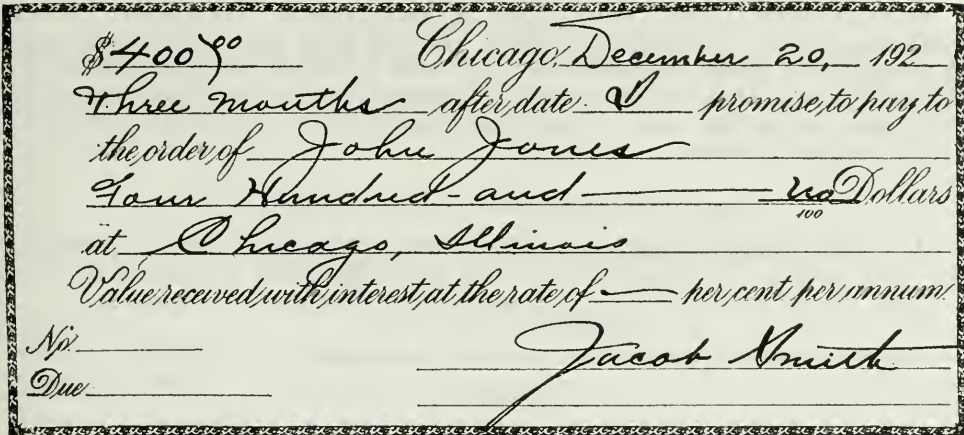 $400 00 Chicago, December 20, 192
Three months after date I promise to pay to
the order of John Jones
Four Hundred and no/100 Dollars
at Chicago, Illinois
Value received with interest at the rate of — per cent per annum.
No.
Jacob Smith
Due